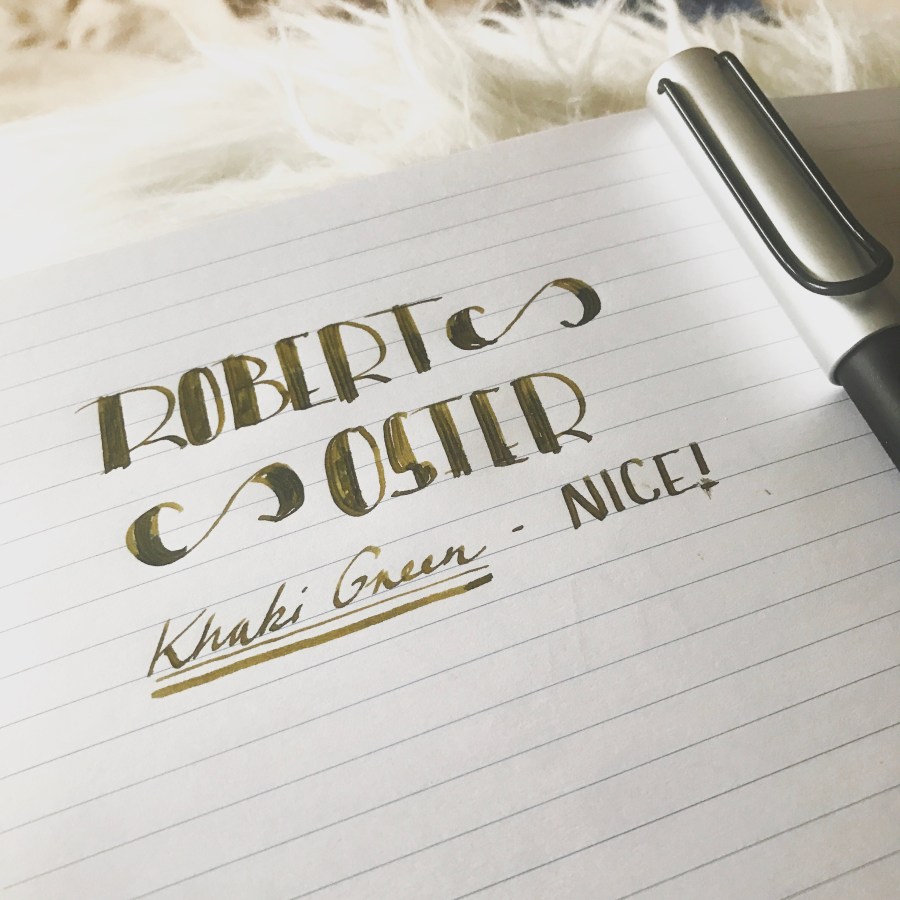 ROBERT
OSTER
Khaki Green - NICE!